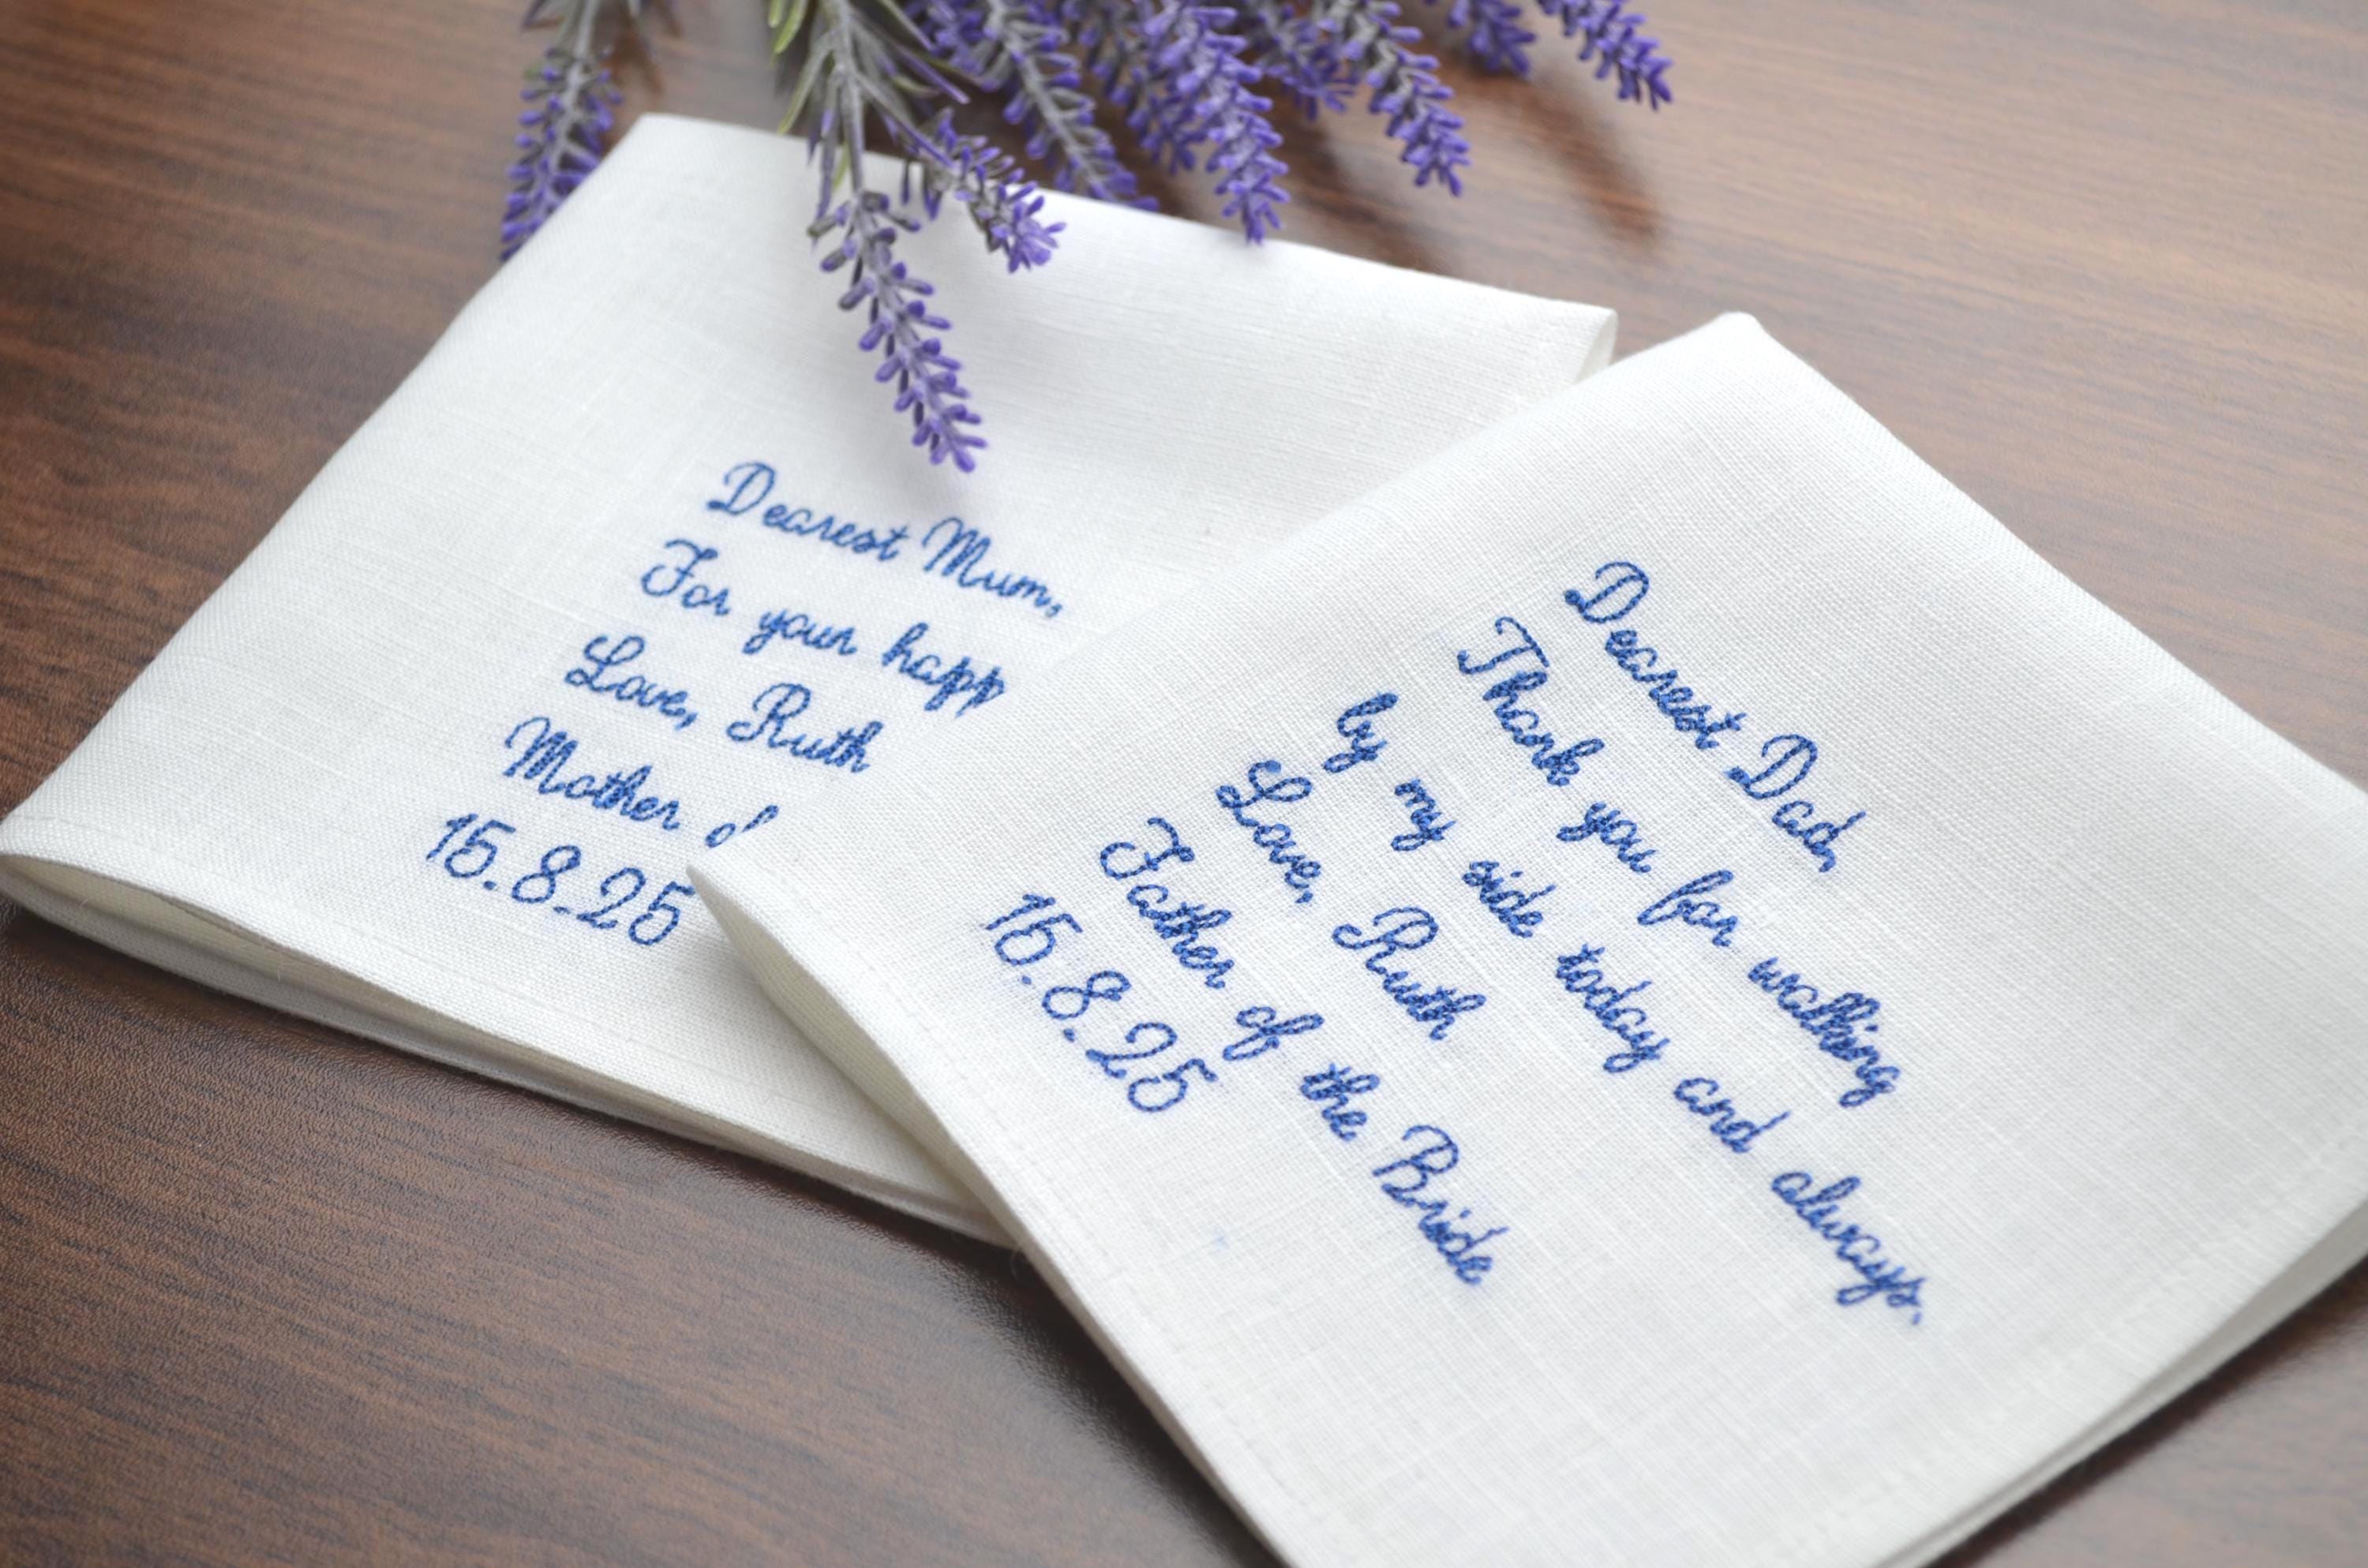 Dearest Mum,
For your happ
Love, Ruth
Mother
15.8.25
Dearest Dad,
Thank you for walking
by my side today and always.
Love, Ruth
Father of the Bride
15.8.25